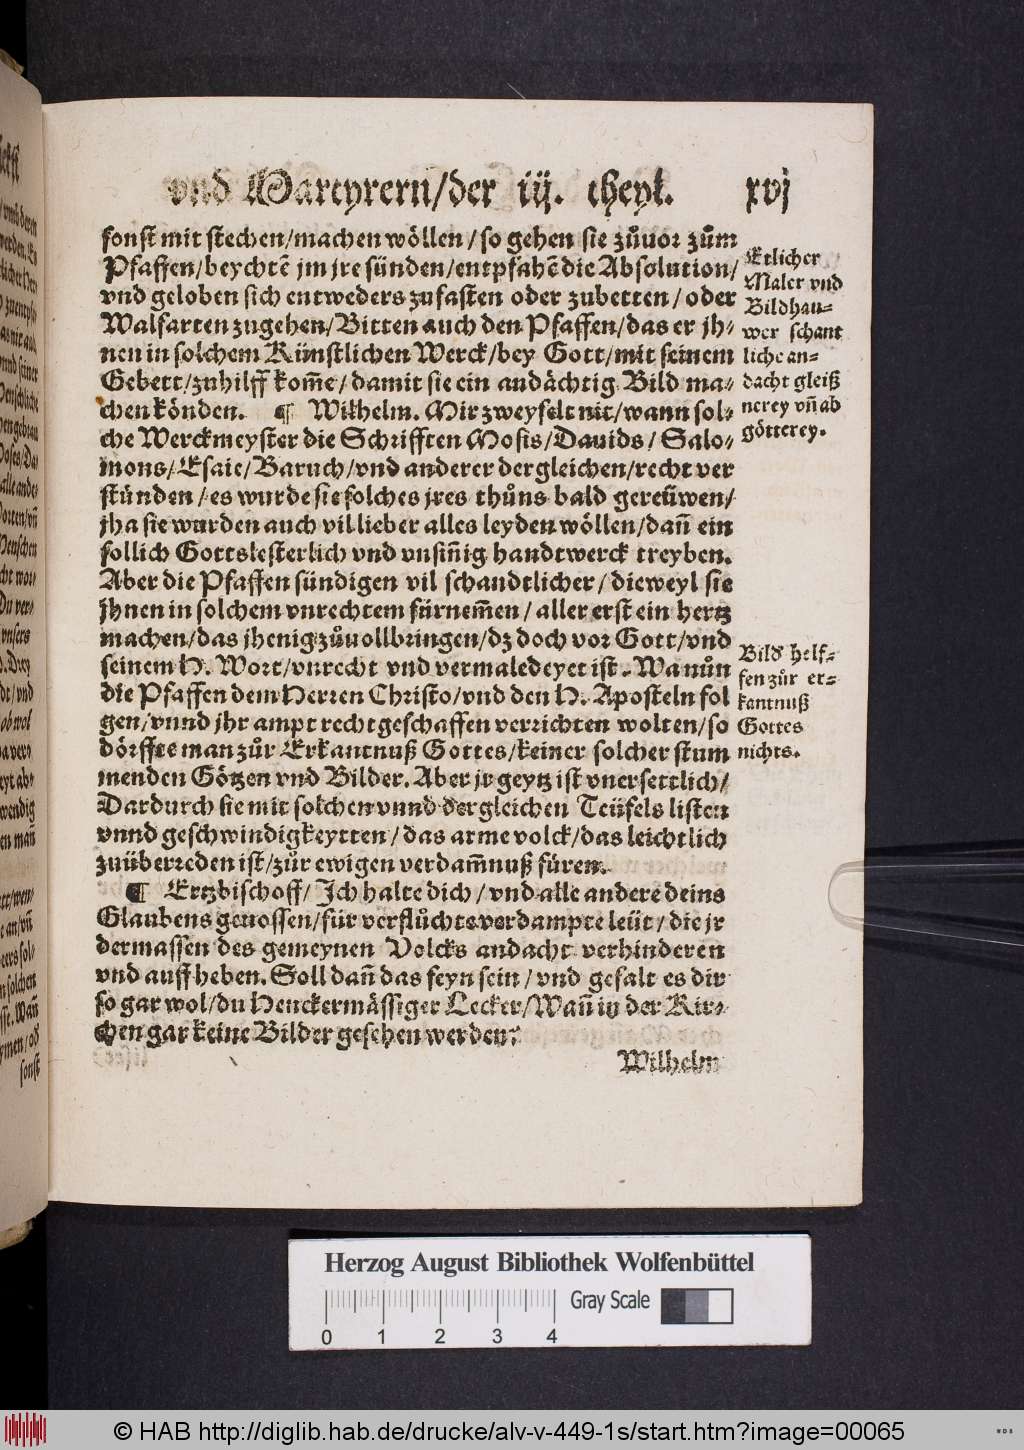 vnd Martyrern/der iij. theyl. xvj
sonst mit stechen/machen wöllen/so gehen sie zůuor zům
Pfaffen/beychtē jm jre sünden/entpfahē die Absolution/
vnd geloben sich entweders zufasten oder zubetten/oder
Walfarten zugehen/Bitten auch den Pfaffen/das er jh-
nen in solchem Künstlichen Werck/bey Gott/mit seinem
Gebett/zuhilff kom̄e/damit sie ein andächtig Bild ma-
chen könden. ¶ Wilhelm. Mir zweyfelt nit/wann sol-
che Werckmeyster die Schrifften Mosis/Dauids/Salo-
mons/Esaie/Baruch/vnd anderer dergleichen/recht ver
stünden/es wurde sie solches jres thůns bald gereüwen/
jha sie wurden auch vil lieber alles leyden wöllen/dan̄ ein
sollich Gottslesterlich vnd vnsin̄ig handtwerck treyben.
Aber die Pfaffen sündigen vil schandtlicher/dieweyl sie
jhnen in solchem vnrechtem fürnem̄en/aller erst ein hertz
machen/das jhenig zůuollbringen/dz doch vor Gott/vnd
seinem H. Wort/vnrecht vnd vermaledeyet ist. Wa nůn
die Pfaffen dem Herren Christo/vnd den H. Aposteln fol
gen/vnnd jhr ampt rechtgeschaffen verrichten wolten/so
dörffte man zůr Erkantnuß Gottes/keiner solcher stum
menden Götzen vnd Bilder. Aber jr geytz ist vnersettlich/
Dardurch sie mit solchen vnnd dergleichen Teüfels listen
vnnd geschwindigkeytten/das arme volck/das leichtlich
zuüberreden ist/zůr ewigen verdam̄nuß füren.
¶ Ertzbischoff/Ich halte dich/vnd alle andere deins
Glaubens genossen/für verflůchte verdampte leüt/die jr
dermassen des gemeynen Volcks andacht verhinderen
vnd auffheben. Soll dan̄ das feyn sein/vnd gefalt es dir
so gar wol/du Henckermässiger Lecker/Wan̄ in der Kir-
chen gar keine Bilder gesehen werden?
Wilhelm
Etlicher
Maler vnd
Bildhau-
wer schant
liche an-
dacht gleiß
nerey vn̄ ab
götterey.
Bilder helf-
fen zůr er-
kantnuß
Gottes
nichts.
Herzog August Bibliothek Wolfenbüttel
Gray Scale
0 1 2 3 4
© HAB http://diglib.hab.de/drucke/alv-v-449-1s/start.htm?image=00065